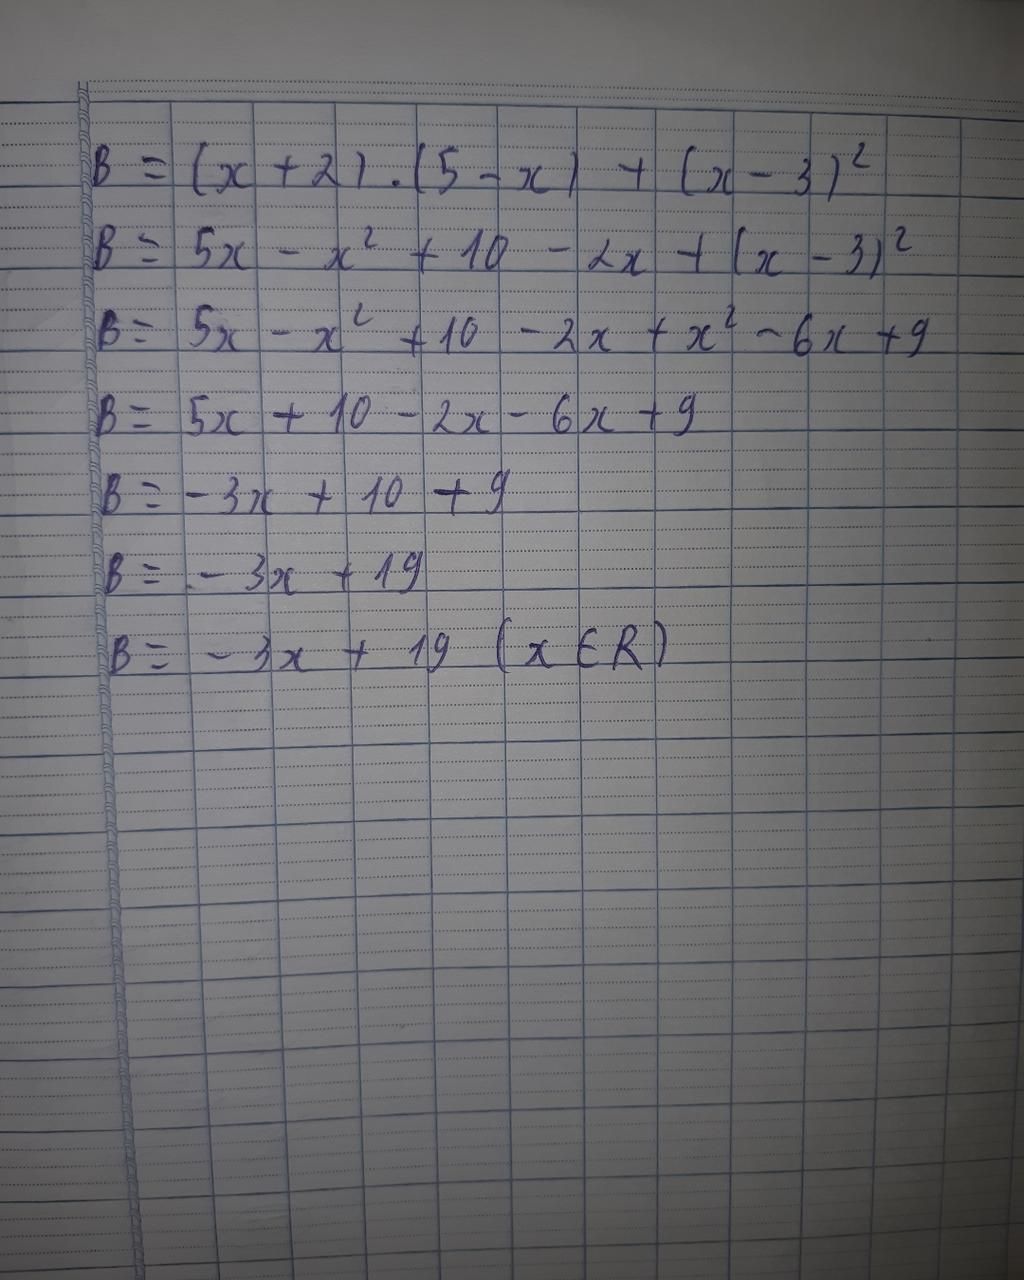 B = (x + 2) . (5 - x) + (x - 3)²
B = 5x - x² + 10 - 2x + (x - 3)²
B = 5x - x² + 10 - 2x + x² - 6x + 9
B = 5x + 10 - 2x - 6x + 9
B = - 3x + 10 + 9
B = - 3x + 19
B = - 3x + 19 (x ∈ R)